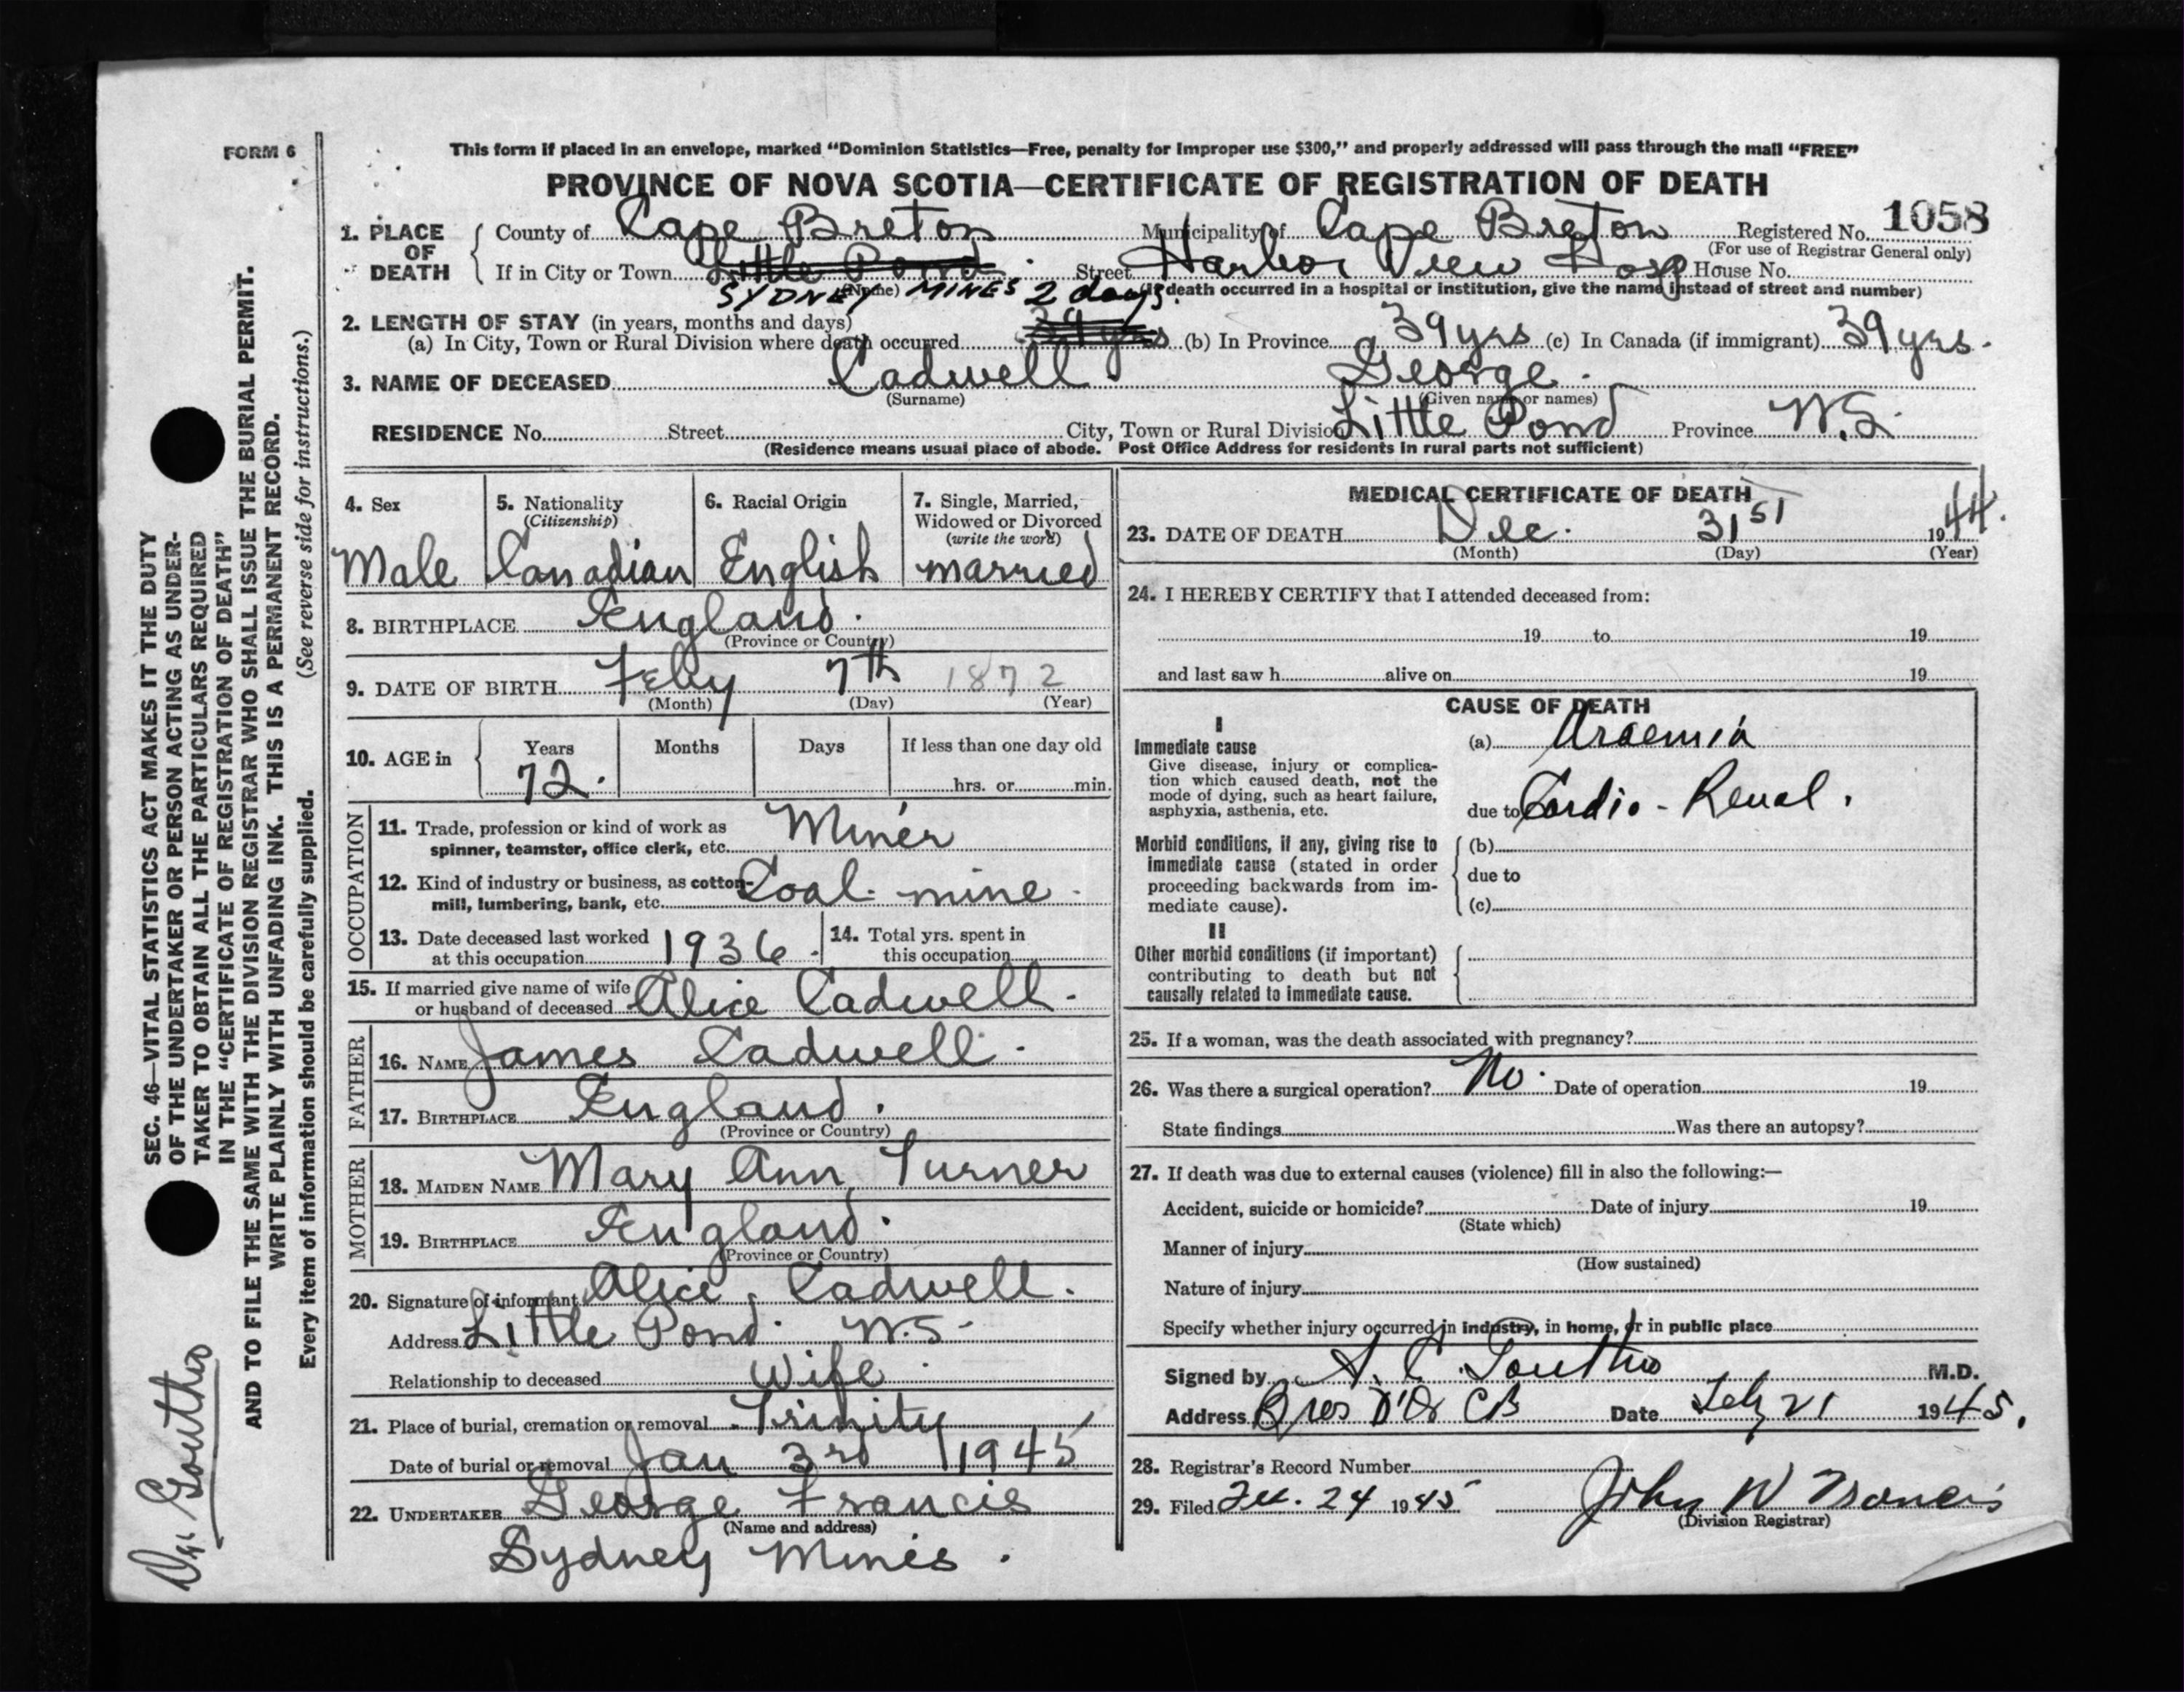 FORM 6
This form if placed in an envelope, marked "Dominion Statistics—Free, penalty for improper use $300," and properly addressed will pass through the mail "FREE"
PROVINCE OF NOVA SCOTIA—CERTIFICATE OF REGISTRATION OF DEATH
1. PLACE OF DEATH County of Cape Breton Municipality of Cape Breton Registered No. 1058
(For use of Registrar General only)
If in City or Town Little Pond Street Harbor View Hosp House No.
SYDNEY MINES (Name) (If death occurred in a hospital or institution, give the name instead of street and number)
2. LENGTH OF STAY (in years, months and days) 2 days
(a) In City, Town or Rural Division where death occurred 39 yrs (b) In Province 39 yrs (c) In Canada (if immigrant) 39 yrs.
3. NAME OF DECEASED Cadwell George.
(Surname) (Given name or names)
RESIDENCE No. Street City, Town or Rural Division Little Pond Province N.S.
(Residence means usual place of abode. Post Office Address for residents in rural parts not sufficient)
4. Sex 5. Nationality (Citizenship) 6. Racial Origin 7. Single, Married, Widowed or Divorced (write the word)
Male Canadian English married
8. BIRTHPLACE England.
(Province or Country)
9. DATE OF BIRTH Feby 7th 1872
(Month) (Day) (Year)
10. AGE in Years Months Days If less than one day old
72. hrs. or min.
OCCUPATION
11. Trade, profession or kind of work as spinner, teamster, office clerk, etc. Miner
12. Kind of industry or business, as cotton-mill, lumbering, bank, etc. Coal mine
13. Date deceased last worked at this occupation 1936. 14. Total yrs. spent in this occupation
15. If married give name of wife or husband of deceased Alice Cadwell.
FATHER
16. NAME James Cadwell.
17. BIRTHPLACE England.
(Province or Country)
MOTHER
18. MAIDEN NAME Mary Ann Turner
19. BIRTHPLACE England.
(Province or Country)
20. Signature of informant Alice Cadwell.
Address Little Pond N.S.
Relationship to deceased Wife
21. Place of burial, cremation or removal Trinity
Date of burial or removal Jan 3rd 1945
22. UNDERTAKER George Francis
(Name and address)
Sydney Mines.
MEDICAL CERTIFICATE OF DEATH
23. DATE OF DEATH Dec. 31st 1944.
(Month) (Day) (Year)
24. I HEREBY CERTIFY that I attended deceased from:
19 to 19
and last saw h alive on 19
CAUSE OF DEATH
I
Immediate cause (a) Uraemia
Give disease, injury or complica-
tion which caused death, not the
mode of dying, such as heart failure,
asphyxia, asthenia, etc. due to Cardio-Renal.
Morbid conditions, if any, giving rise to (b)
immediate cause (stated in order
proceeding backwards from im- due to
mediate cause). (c)
II
Other morbid conditions (if important)
contributing to death but not
causally related to immediate cause.
25. If a woman, was the death associated with pregnancy?
26. Was there a surgical operation? No. Date of operation 19
State findings Was there an autopsy?
27. If death was due to external causes (violence) fill in also the following:—
Accident, suicide or homicide? Date of injury 19
(State which)
Manner of injury
(How sustained)
Nature of injury
Specify whether injury occurred in industry, in home, or in public place
Signed by M.D.
Address Bras D'Or CB Date Feb 21 1945.
28. Registrar's Record Number
29. Filed Feb. 24 1945 John W Francis
(Division Registrar)
SEC. 46—VITAL STATISTICS ACT MAKES IT THE DUTY
OF THE UNDERTAKER OR PERSON ACTING AS UNDER-
TAKER TO OBTAIN ALL THE PARTICULARS REQUIRED
IN THE "CERTIFICATE OF REGISTRATION OF DEATH"
AND TO FILE THE SAME WITH THE DIVISION REGISTRAR WHO SHALL ISSUE THE BURIAL PERMIT.
WRITE PLAINLY WITH UNFADING INK. THIS IS A PERMANENT RECORD.
Every item of information should be carefully supplied. (See reverse side for instructions.)